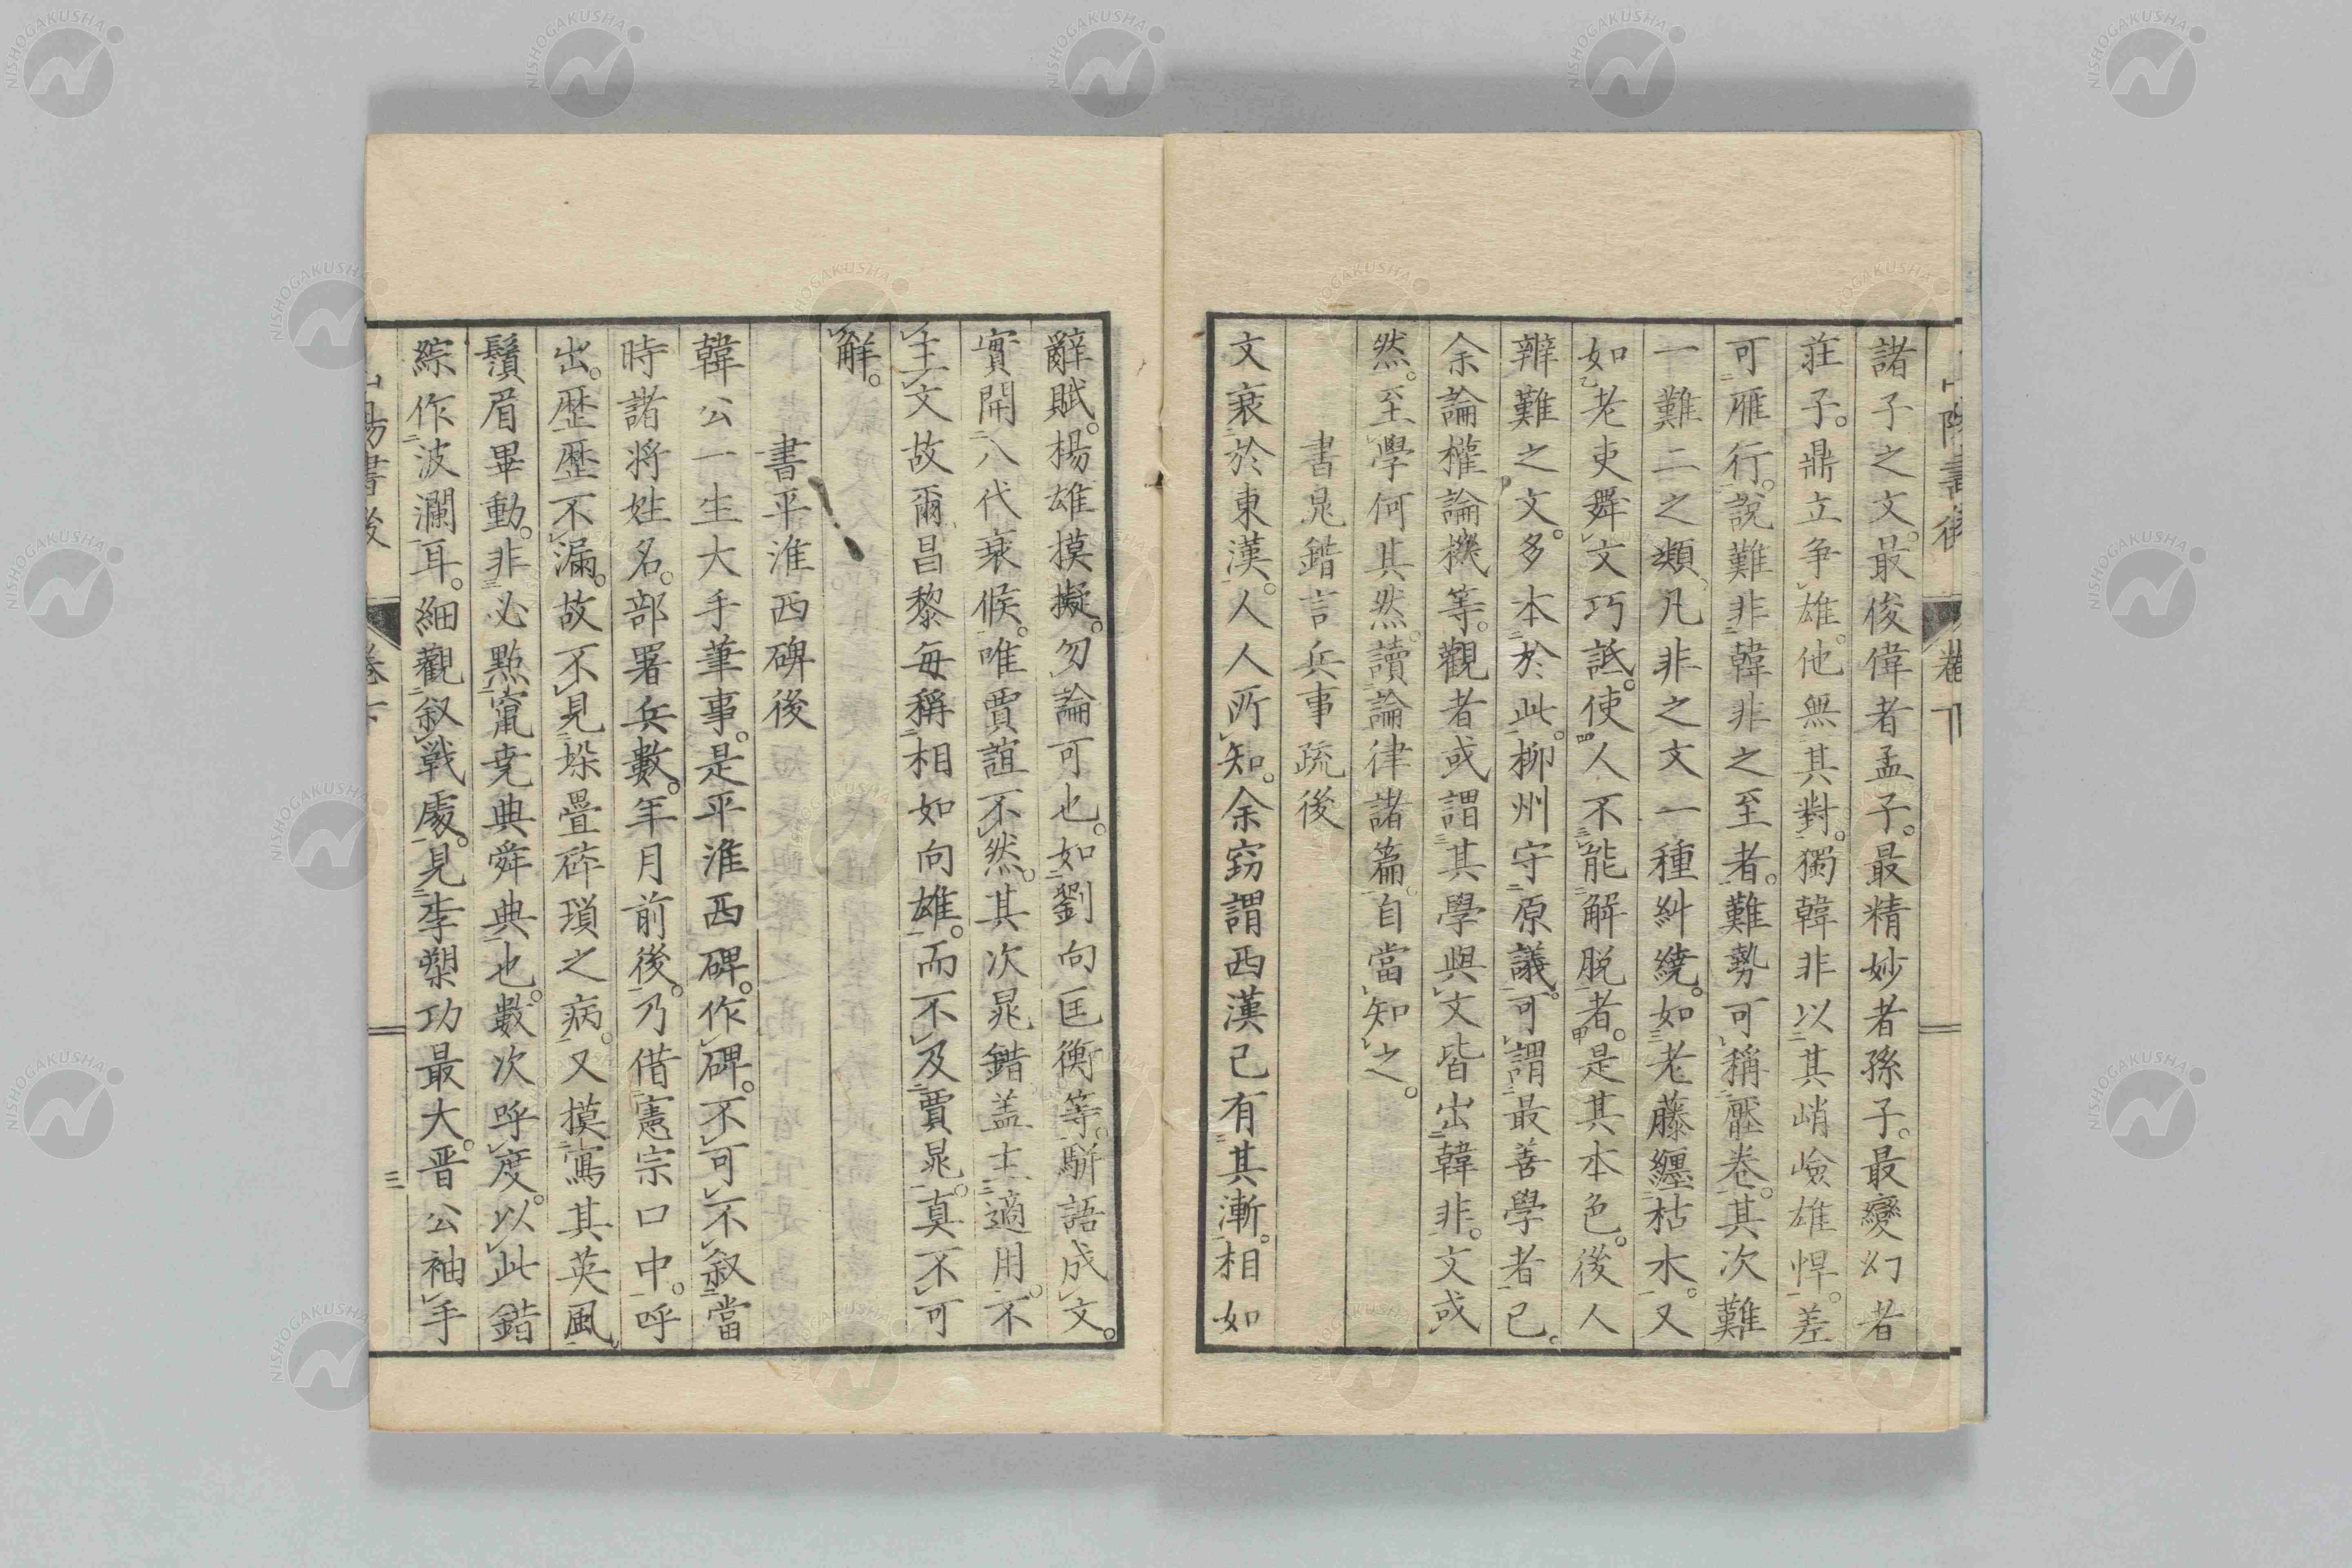 諸子之文。最俊偉者孟子。最精妙者孫子。最變幻者
莊子。鼎立爭雄。他無其對。獨韓非以其峭嶮雄悍。差
可雁行。說難非韓非之至者。難勢可稱壓卷。其次難
一難二之類、凡非之文一種糾繞。如老藤纏枯木。又
如老吏舞文巧詆。使人不能解脫者。是其本色。後人
辨難之文。多本於此。柳州守原議。可謂最善學者已。
余論權論機等。觀者或謂其學與文皆出韓非。文或
然。至學何其然。讀論律諸篇。自當知之。
書晁錯言兵事疏後
文衰於東漢。人人所知。余窃謂西漢已有其漸。相如
辭賦。楊雄摸擬。勿論可也。如劉向匡衡等。駢語成文。
實開八代衰候。唯賈誼不然。其次晁錯盖主適用。不
主文故爾昌黎每稱相如向雄。而不及賈晁。真不可
解。
書平淮西碑後
韓公一生大手筆事。是平淮西碑。作碑。不可不叙當
時諸将姓名。部署兵數。年月前後。乃借憲宗口中。呼
出。歴歴不漏。故不見垛疊碎瑣之病。又摸寫其英風
鬚眉畢動。非必點竄堯典舜典也。數次呼度。以此錯
綜作波瀾耳。細觀叙戦處。見李塑功最大。晋公袖手
山陽書後
卷下
三